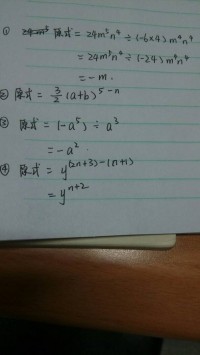 ① 原式 = 24m⁵n⁴ ÷ (-6×4) m⁴n⁴
= 24m⁵n⁴ ÷ (-24) m⁴n⁴
= -m.
② 原式 = 3/2 (a+b)⁵⁻ⁿ
③ 原式 = (-a⁵) ÷ a³
= -a².
④ 原式 = y⁽²ⁿ⁺³⁾⁻⁽ⁿ⁺¹⁾
= yⁿ⁺²